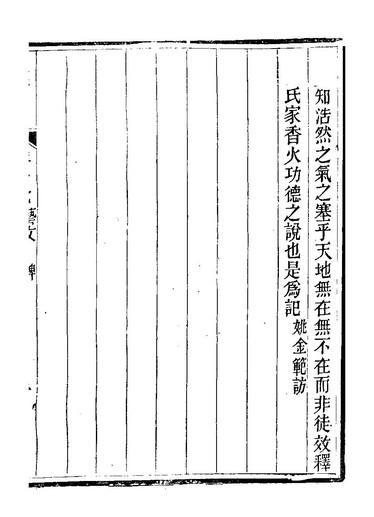 知浩然之氣之塞乎天地無在無不在而非徒效釋
氏家香火功德之說也是爲記姚金範訪
藝文 碑